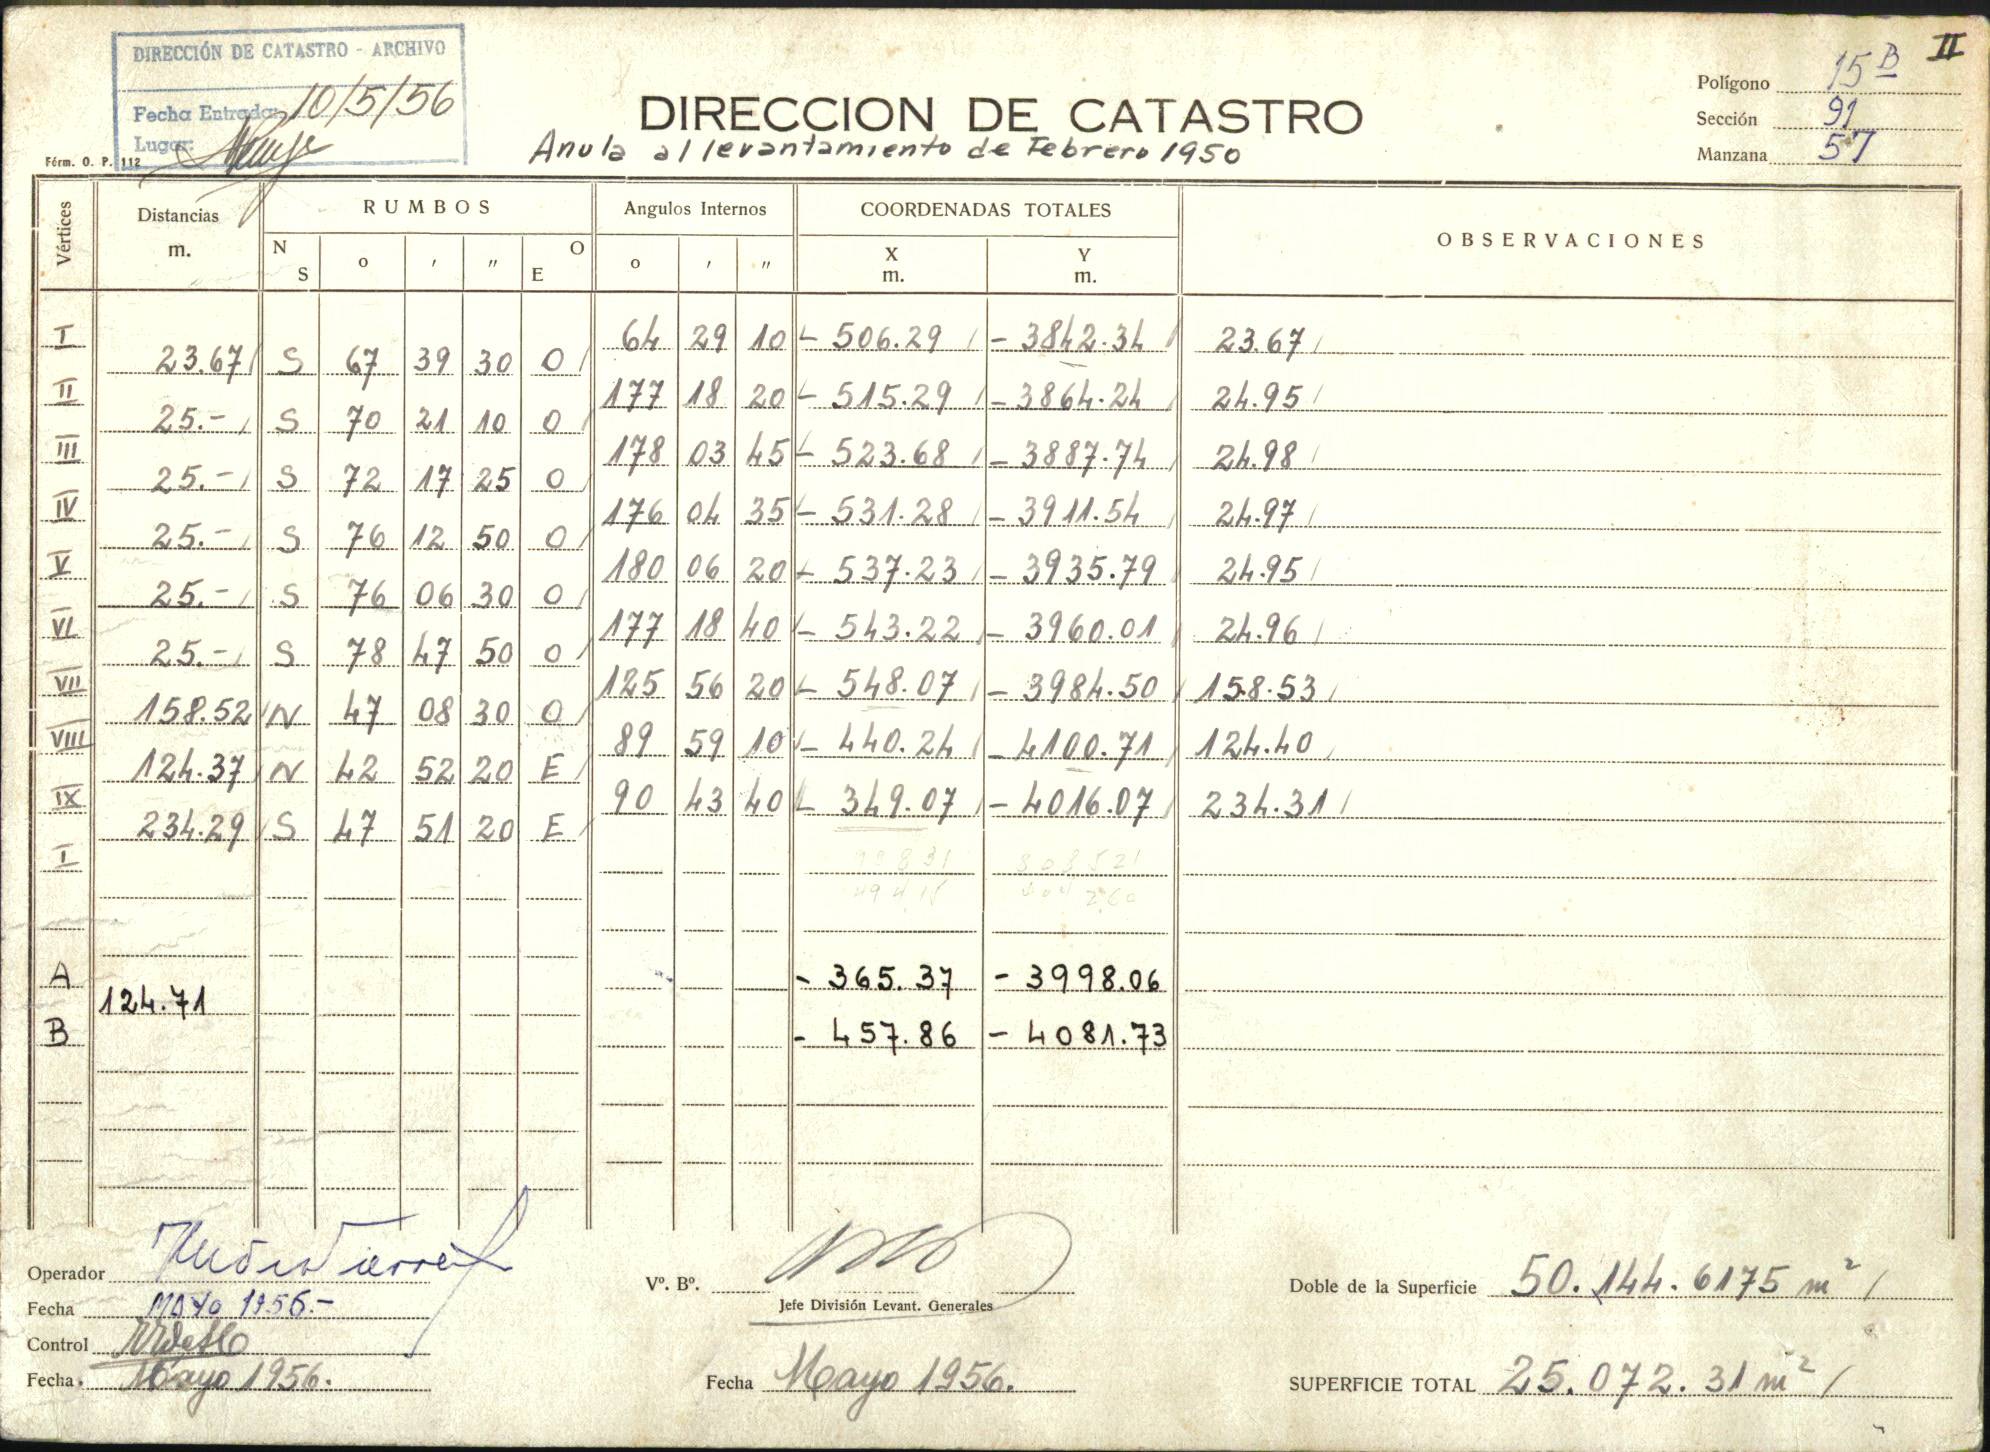 II
DIRECCIÓN DE CATASTRO - ARCHIVO
Fecha Entrada: 10/5/56
Lugar:
Férm. O. P. 112
DIRECCION DE CATASTRO
Anula al levantamiento de Febrero 1950
Polígono 15 B
Sección 91
Manzana 57
Vértices Distancias m. RUMBOS Angulos Internos COORDENADAS TOTALES OBSERVACIONES
N S o ' " O E o ' " X m. Y m.
I 64 29 10 - 506.29 - 3842.34 23.67
23.67 S 67 39 30 O
II 177 18 20 - 515.29 - 3864.24 24.95
25.- S 70 21 10 O
III 178 03 45 - 523.68 - 3887.74 24.98
25.- S 72 17 25 O
IV 176 04 35 - 531.28 - 3911.54 24.97
25.- S 76 12 50 O
V 180 06 20 - 537.23 - 3935.79 24.95
25.- S 76 06 30 O
VI 177 18 40 - 543.22 - 3960.01 24.96
25.- S 78 47 50 O
VII 125 56 20 - 548.07 - 3984.50 158.53
158.52 N 47 08 30 O
VIII 89 59 10 - 440.24 - 4100.71 124.40
124.37 N 42 52 20 E
IX 90 43 40 - 349.07 - 4016.07 234.31
234.29 S 47 51 20 E
I
A - 365.37 - 3998.06
124.71
B - 457.86 - 4081.73
Operador
Fecha MAYO 1956.-
Control
Fecha Mayo 1956.
Vº. Bº.
Jefe División Levant. Generales
Fecha Mayo 1956.
Doble de la Superficie 50.144.6175 m²
SUPERFICIE TOTAL 25.072.31 m²